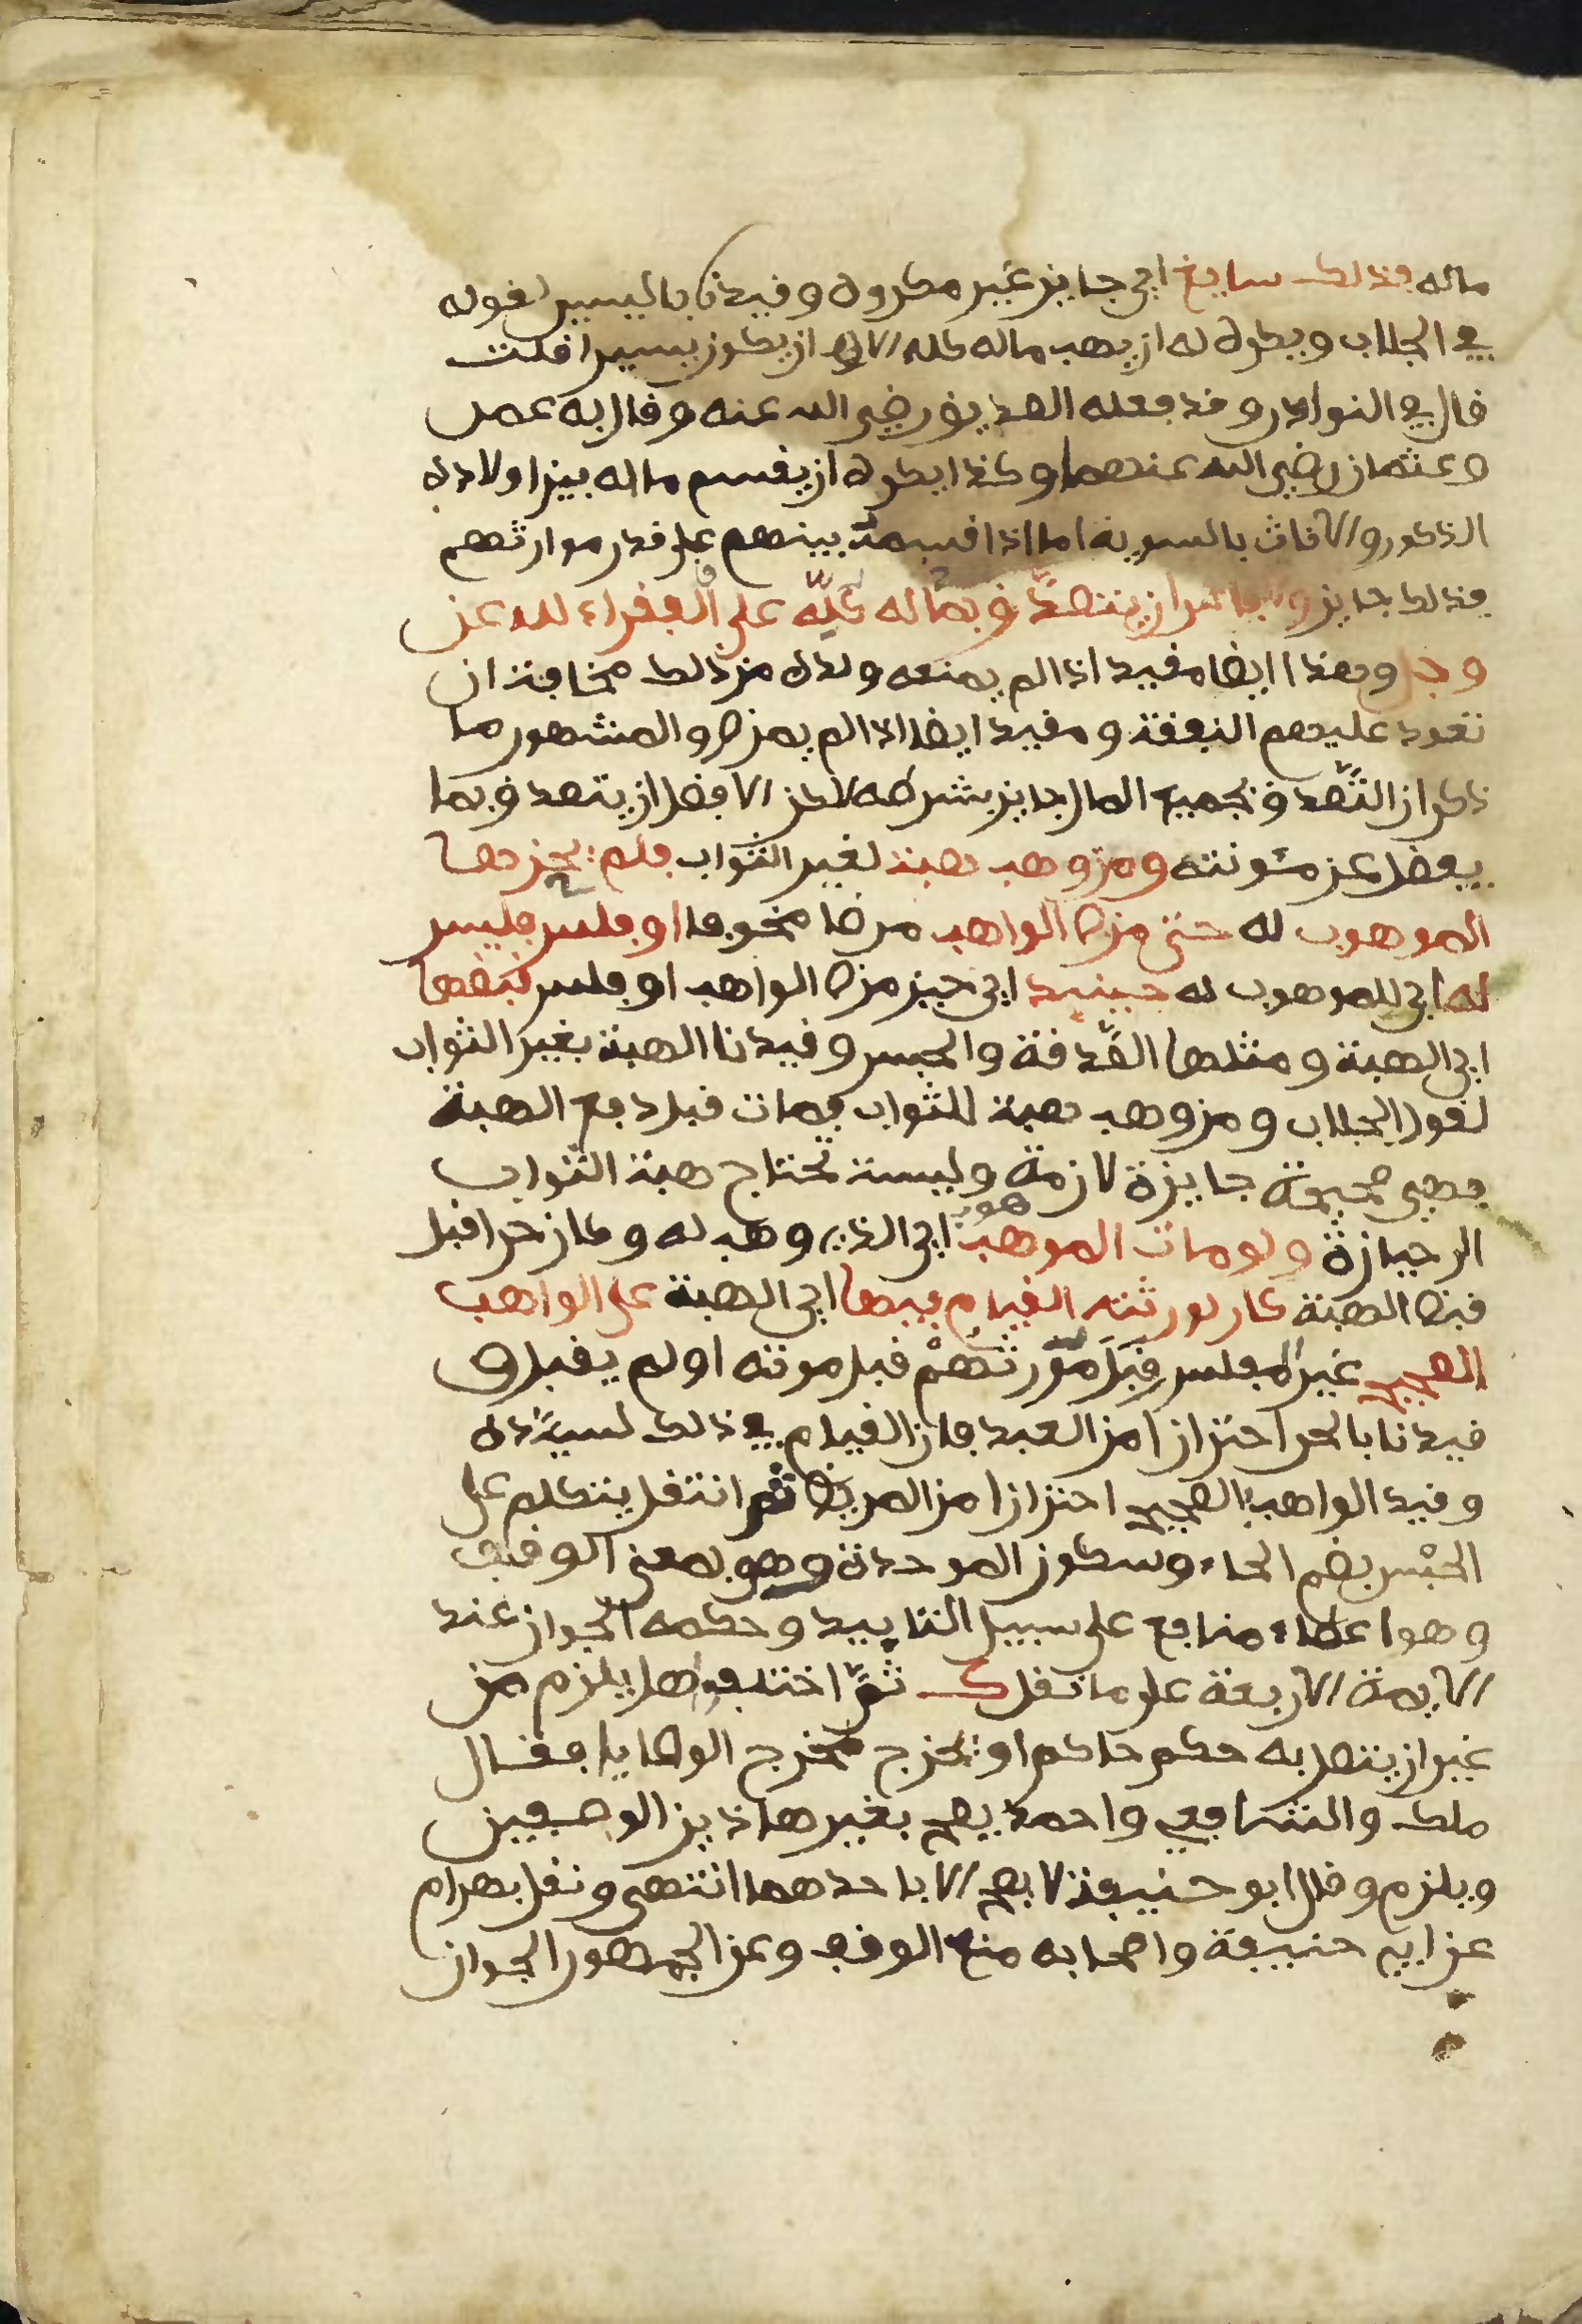 ماله فذلك سايغ اي جايز غير مكروه وقيدنا باليسير لقوله
في الجلاب ويكره له ان يهب ماله كله الا ان يكون يسيرا قلت
قال في النوادر وقد فعله الصديق رضي الله عنه وقال به عمر
وعثمان رضي الله عنهما وكذا يكره ان يقسم ماله بين اولاده
الذكور والاناث بالسوية اما اذا اقسمه بينهم على قدر موارثهم
فذلك جايز ولا باس ان يتصدق بماله كله على الفقراء لله عز
وجل وهذا ايضا مقيد اذا لم يمنعه ولده من ذلك مخافة ان
تعود عليهم النفقة ومقيد ايضا اذا لم يمرض والمشهور ما
ذكر ان التصدق بجميع المال جايز بشرطه لاكن الافضل ان يتصدق بما
يفضل عن مئونته ومن وهب هبة لغير الثواب فلم يحزها
الموهوب له حتى مرض الواهب مرضا مخوفا او فلس فليس
له اي للموهوب له حينيذ اي حين مرض الواهب او فلس قبضها
اي الهبة ومثلها الصدقة والحبس وقيدنا الهبة بغير الثواب
لقول الجلاب ومن وهب هبة للثواب فمات قبل دفع الهبة
فهي صحيحة جايزة لازمة وليست تحتاج هبة الثواب
الى حيازة ولو مات الموهوب اي الذي وهب له وكان حرا قبل
قبض الهبة كان لورثته القيام فيها اي الهبة على الواهب
الصحيح غير المفلس قبل مورثهم قبل موته او لم يقبل و
قيدنا بالحر احترازا من العبد فان القيام في ذلك لسيده
وقيد الواهب بالصحيح احترازا من المريض ثم انتقل يتكلم على
الحبس بضم الحاء وسكون الموحدة وهو بمعنى الوقف
وهو اعطاء منافع على سبيل التابيد وحكمه الجواز عند
الايمة الاربعة على ما نقل ك ثم اختلفوا هل يلزم من
غير ان يتصل به حكم حاكم او يخرج مخرج الوصايا فقال
ملك والشافعي واحمد يصح بغير هاذين الوصفين
ويلزم وقال ابو حنيفة لا يصح الا باحدهما انتهى ونقل بهرام
عن ابي حنيفة واصحابه منع الوقف وعن الجمهور الجواز